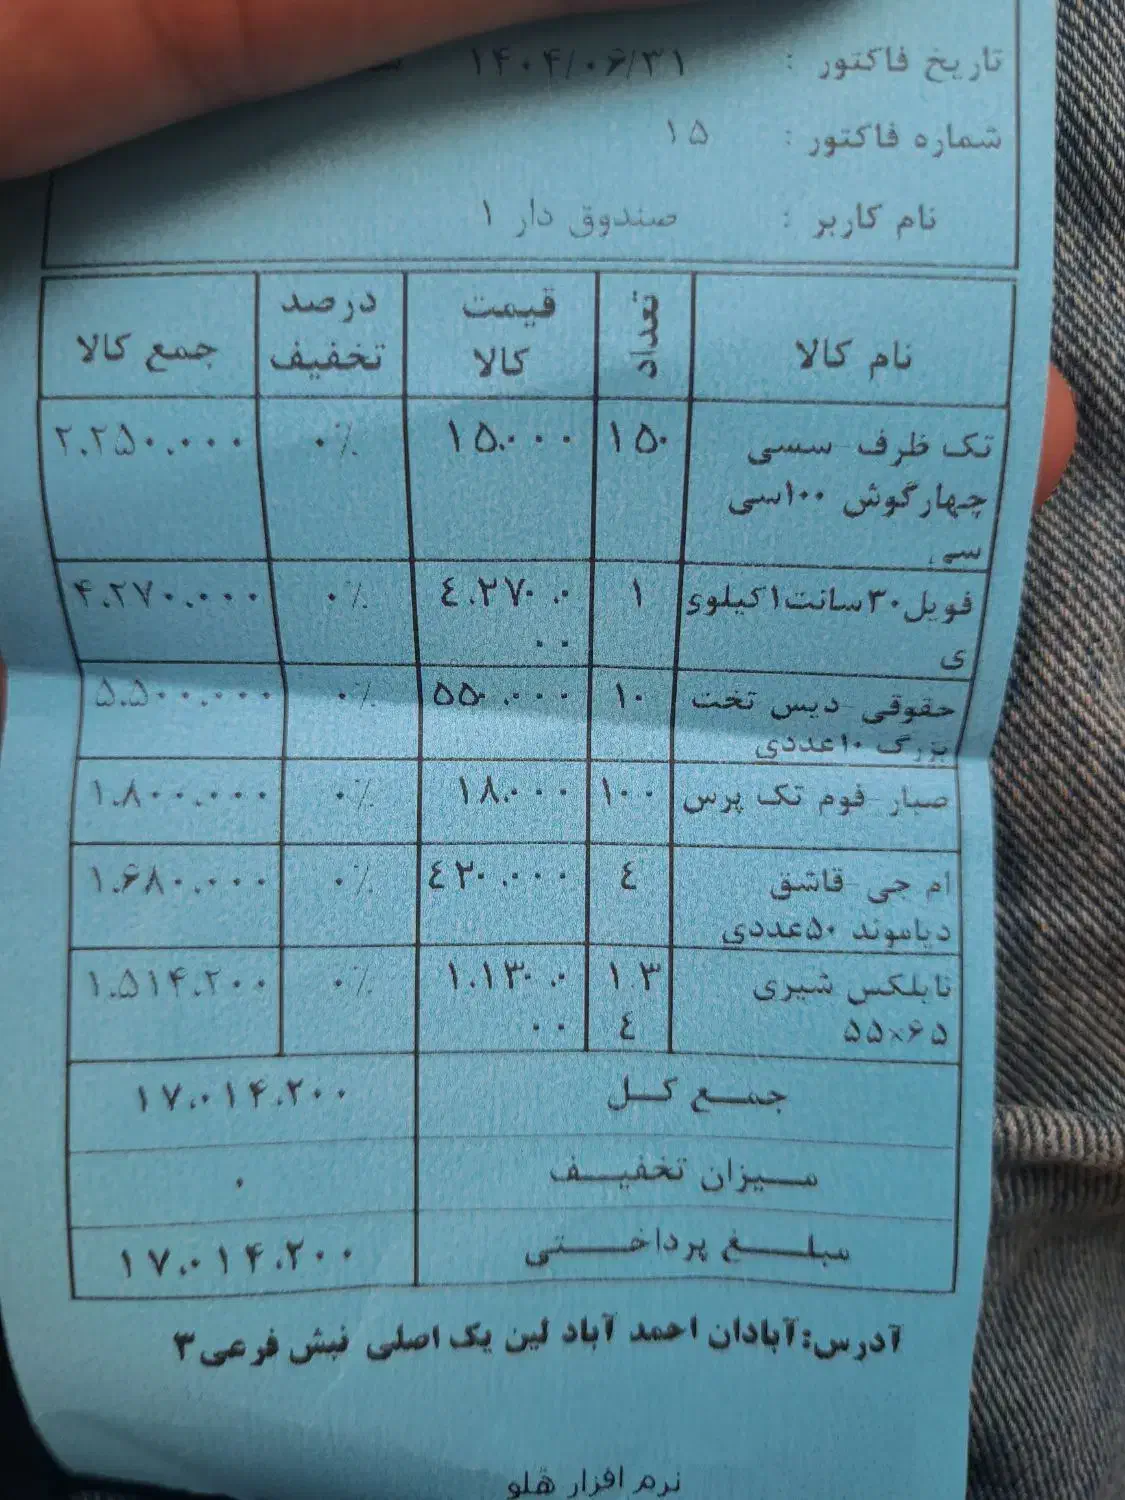 تاریخ فاکتور : ۱۴۰۴/۰۶/۳۱
شماره فاکتور : ۱۵
نام کاربر : صندوق دار ۱
نام کالا تعداد قیمت کالا درصد تخفیف جمع کالا
تک ظرف سسی ۱۵۰ ۱۵.۰۰۰ ۰٪ ۲.۲۵۰.۰۰۰
چهارگوش ۱۰۰سی
سی
فویل۳۰سانت۱کیلوی ۱ ٤.۲۷۰.۰ ۰٪ ۴.۲۷۰.۰۰۰
ی ۰۰
حقوقی دیس تخت ۱۰ ۵۵۰.۰۰۰ ۰٪ ۵.۵۰۰.۰۰۰
بزرگ ۱۰عددی
صبار فوم تک پرس ۱۰۰ ۱۸.۰۰۰ ۰٪ ۱.۸۰۰.۰۰۰
ام جی قاشق ٤ ٤۲۰.۰۰۰ ۰٪ ۱.۶۸۰.۰۰۰
دیاموند ۵۰عددی
نایلکس شیری ۱.۳ ۱.۱۳۰.۰ ۰٪ ۱.۵۱۴.۲۰۰
۵۵×۶۵ ٤ ۰۰
جمع کل ۱۷.۰۱۴.۲۰۰
میزان تخفیف ۰
مبلغ پرداختی ۱۷.۰۱۴.۲۰۰
آدرس:آبادان احمد آباد لین یک اصلی نبش فرعی۳
نرم افزار هلو